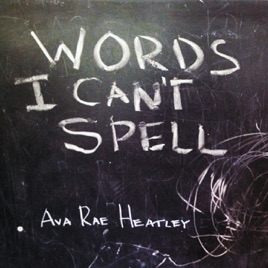 WORDS
I CAN'T
SPELL
AVA RAE HEATLEY